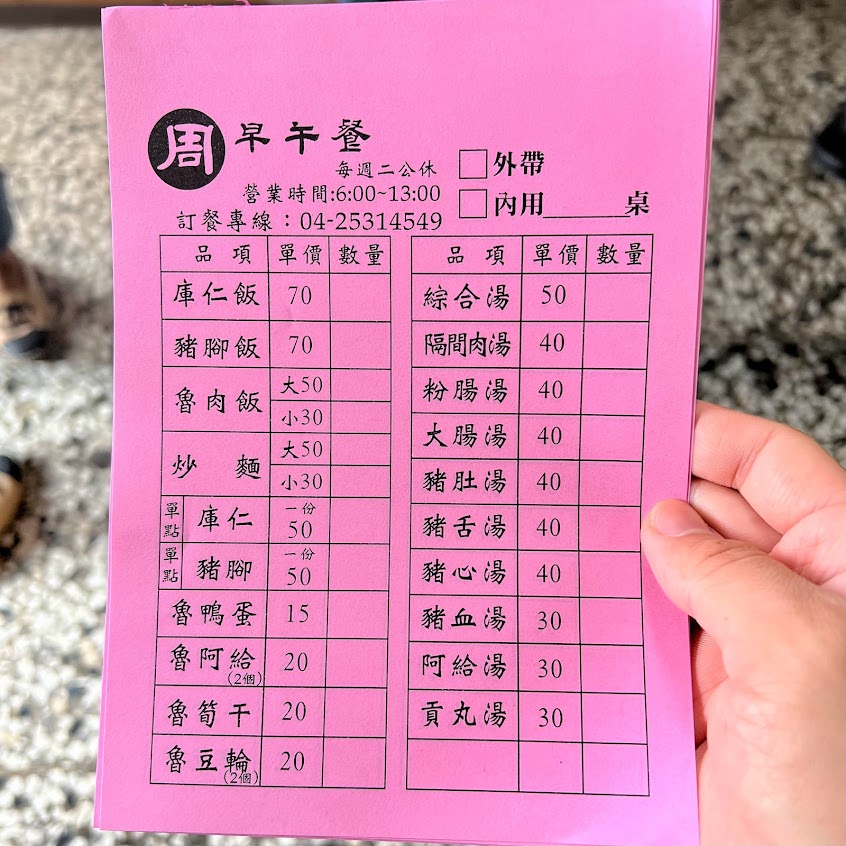 周 早午餐
每週二公休
營業時間:6:00~13:00
訂餐專線：04-25314549
□外帶
□內用______桌
品項 單價 數量
庫仁飯 70
豬腳飯 70
魯肉飯 大50
小30
炒麵 大50
小30
單點 庫仁 一份50
單點 豬腳 一份50
魯鴨蛋 15
魯阿給(2個) 20
魯筍干 20
魯豆輪(2個) 20
品項 單價 數量
綜合湯 50
隔間肉湯 40
粉腸湯 40
大腸湯 40
豬肚湯 40
豬舌湯 40
豬心湯 40
豬血湯 30
阿給湯 30
貢丸湯 30